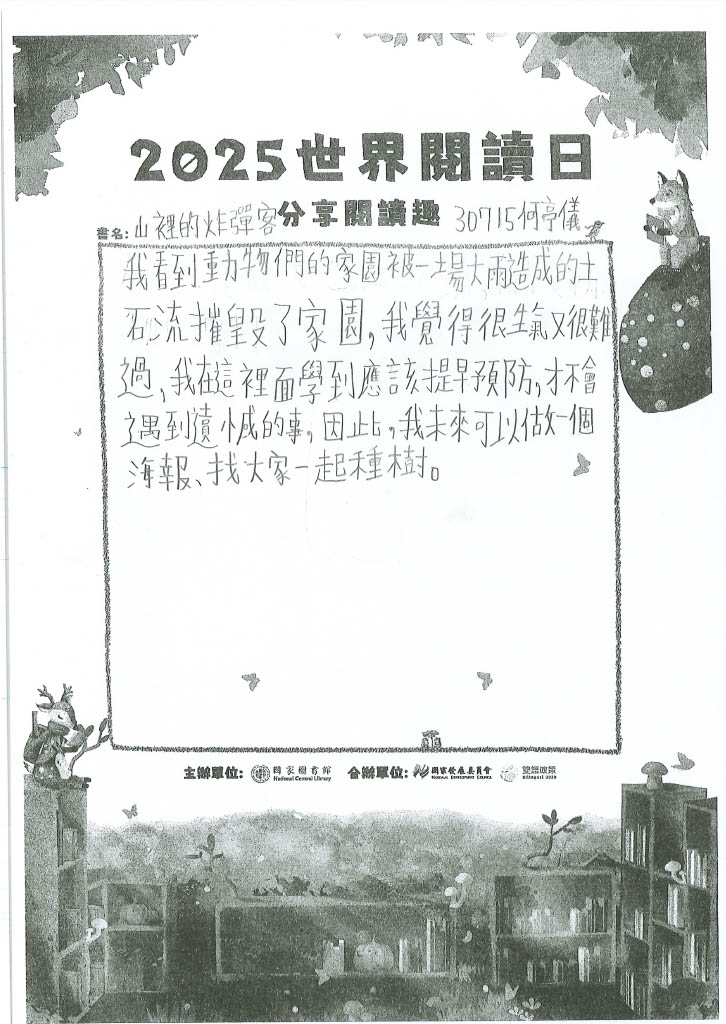 2025世界閱讀日
分享閱讀趣
書名:山裡的炸彈客 30715何亭儀
我看到動物們的家園被一場大雨造成的土
石流摧毀了家園,我覺得很生氣又很難
過,我在這裡面學到應該提早預防,才不會
遇到遺憾的事。因此,我未來可以做一個
海報、找大家一起種樹。
主辦單位: 國家圖書館 National Central Library 合辦單位: 國家發展委員會 NATIONAL DEVELOPMENT COUNCIL 雙語政策 Bilingual 2030